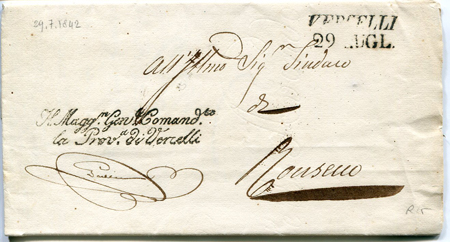 29.7.1842
VERCELLI
29 LUGL.
All'Illmo Sigr Sindaco
di
Il Maggre Gene Comandte
la Prova di Vercelli
Ronsecco